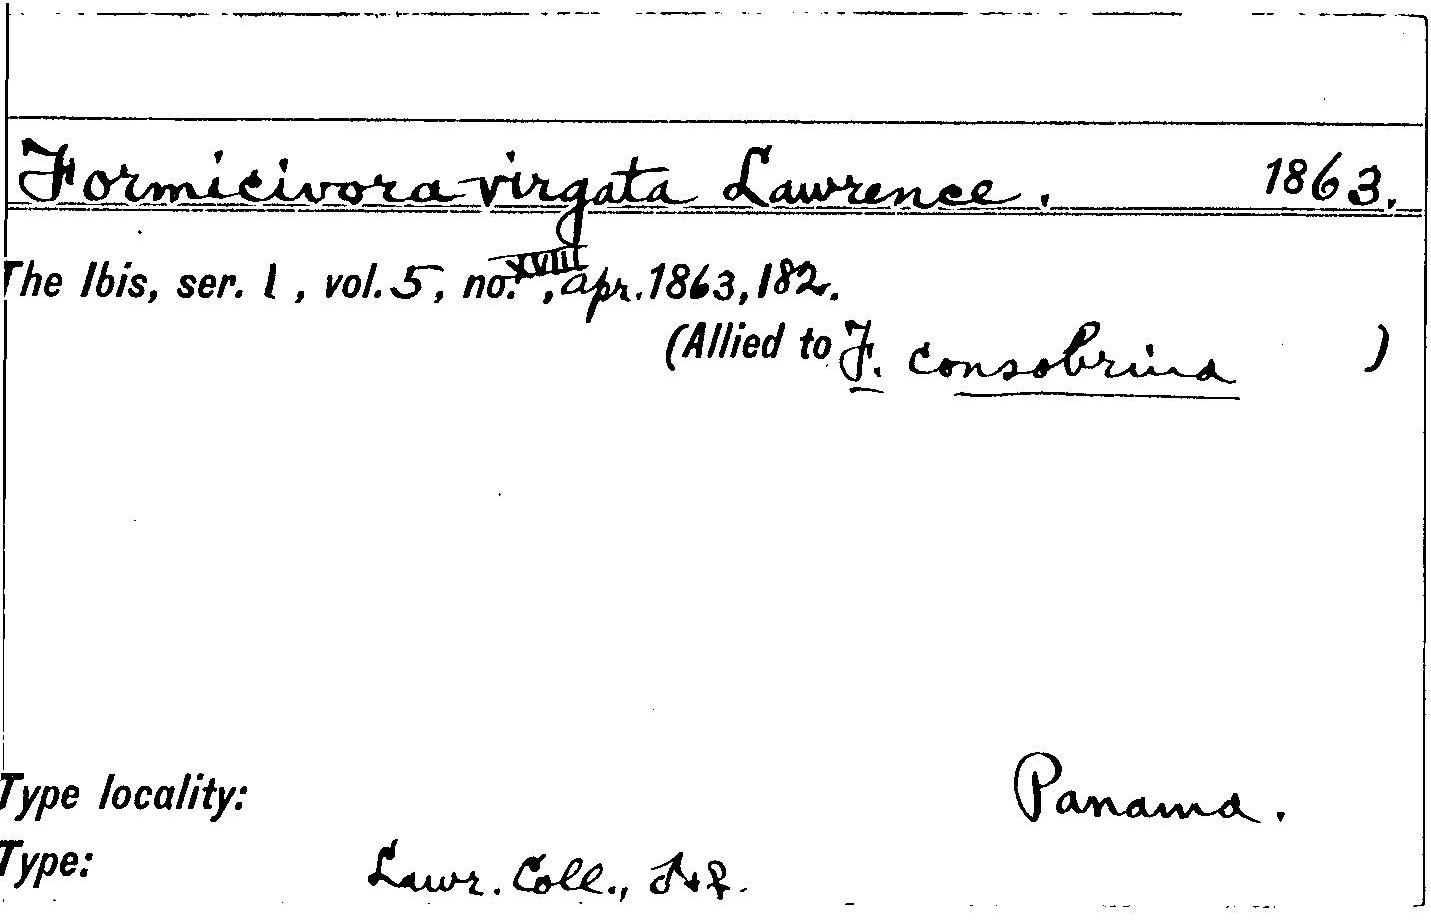 Formicivora virgata Lawrence. 1863.
The Ibis, ser. 1, vol. 5, no. XVIII, apr. 1863, 182.
(Allied to F. consobrina )
Type locality: Panama.
Type: Lawr. Coll., ♂+♀.